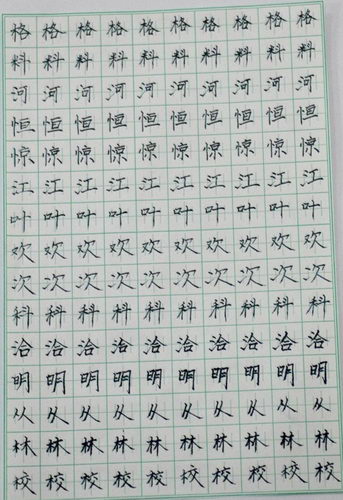 格格格格格格格格格格
料料料料料料料料料料
河河河河河河河河河河
恒恒恒恒恒恒恒恒恒恒
惊惊惊惊惊惊惊惊惊惊
江江江江江江江江江江
叶叶叶叶叶叶叶叶叶叶
欢欢欢欢欢欢欢欢欢欢
次次次次次次次次次次
科科科科科科科科科科
洽洽洽洽洽洽洽洽洽洽
明明明明明明明明明明
从从从从从从从从从从
林林林林林林林林林林
校校校校校校校校校校